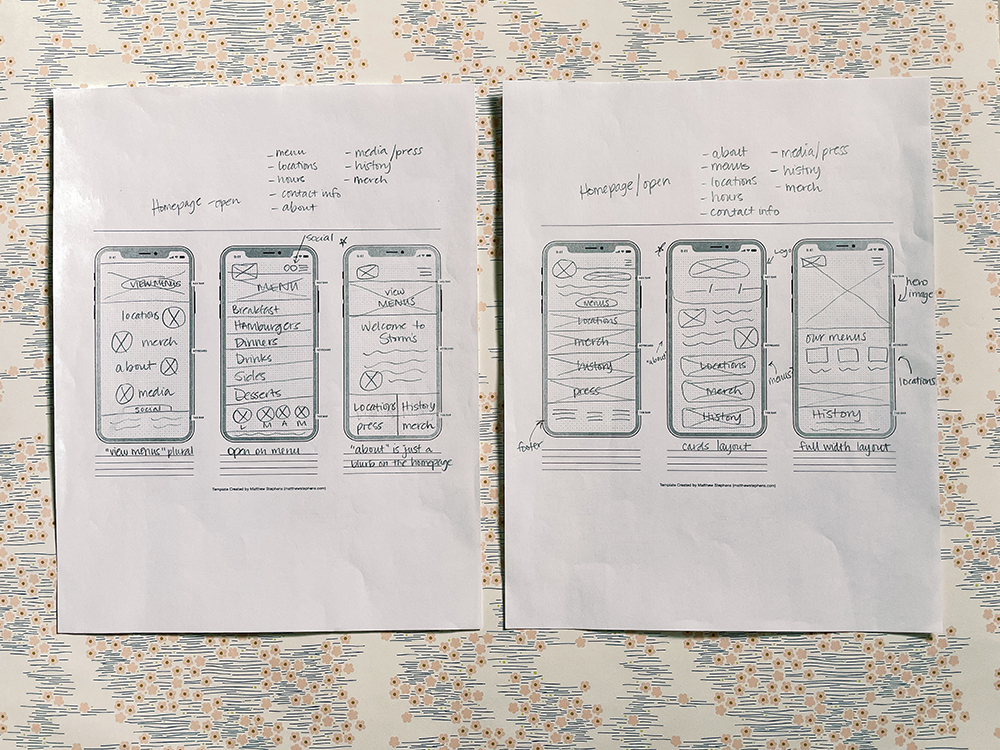 - menu
- locations
- hours
- contact info
- about
- media/press
- history
- merch
Homepage - open
social
VIEW MENUS
locations
merch
about
media
social
"view menus" plural
MENU
Breakfast
Hamburgers
Dinners
Drinks
Sides
Desserts
L M A M
open on menu
view
MENUS
Welcome to
Storms
Locations
History
press
merch
"about" is just a
blurb on the homepage
Template Created by Matthew Stephens (matthewstephens.com)
- about
- menus
- locations
- hours
- contact info
- media/press
- history
- merch
Homepage/open
menus
locations
merch
history
press
footer
logo
"about"
Locations
Merch
History
menus?
cards layout
hero
image
our menus
locations
History
full width layout
Template Created by Matthew Stephens (matthewstephens.com)